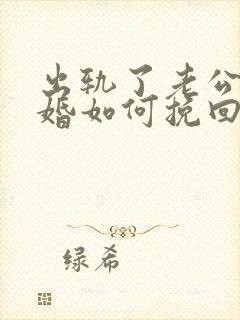 出轨了老公
婚如何挽回
绿希